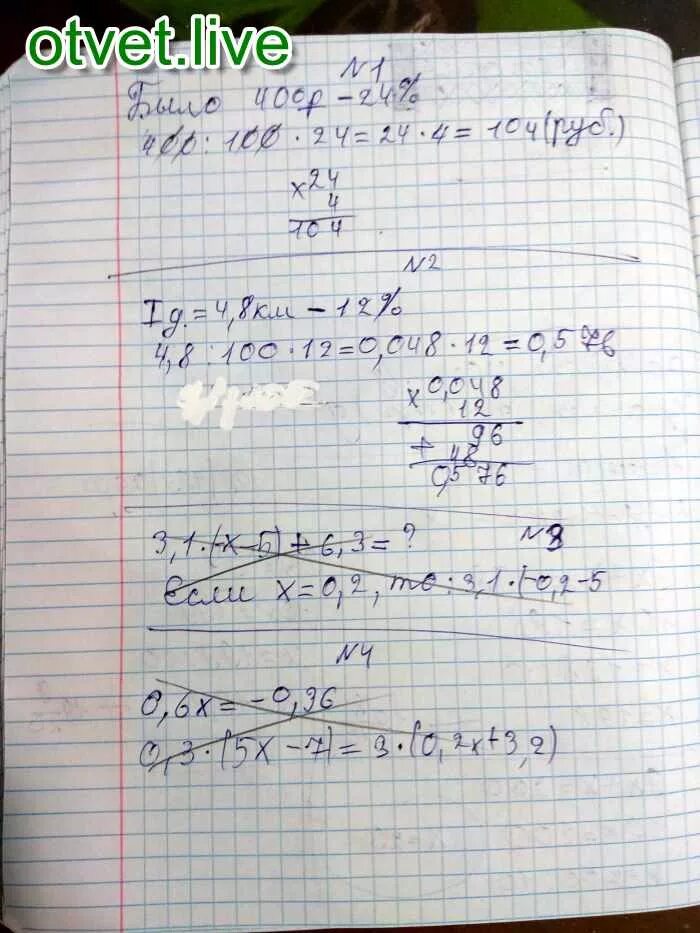 otvet.live
№1
Было 400р - 24%
400 : 100 · 24 = 24 · 4 = 104 (руб.)
x 24
4
104
№2
I д. = 4,8 км - 12%
4,8 : 100 · 12 = 0,048 · 12 = 0,576
x 0,048
12
96
+ 48
0,576
№3
3,1 · (-x - 5) + 6,3 = ?
Если x = 0,2, то : 3,1 · (-0,2 - 5
№4
0,6x = -0,36
0,3 · (5x - 7) = 3 · (0,2x + 3,2)